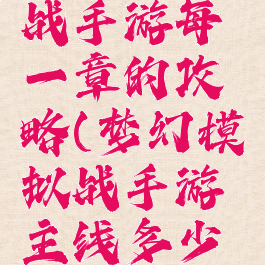 战手游每
一章的攻
略(梦幻模
拟战手游
主线多少